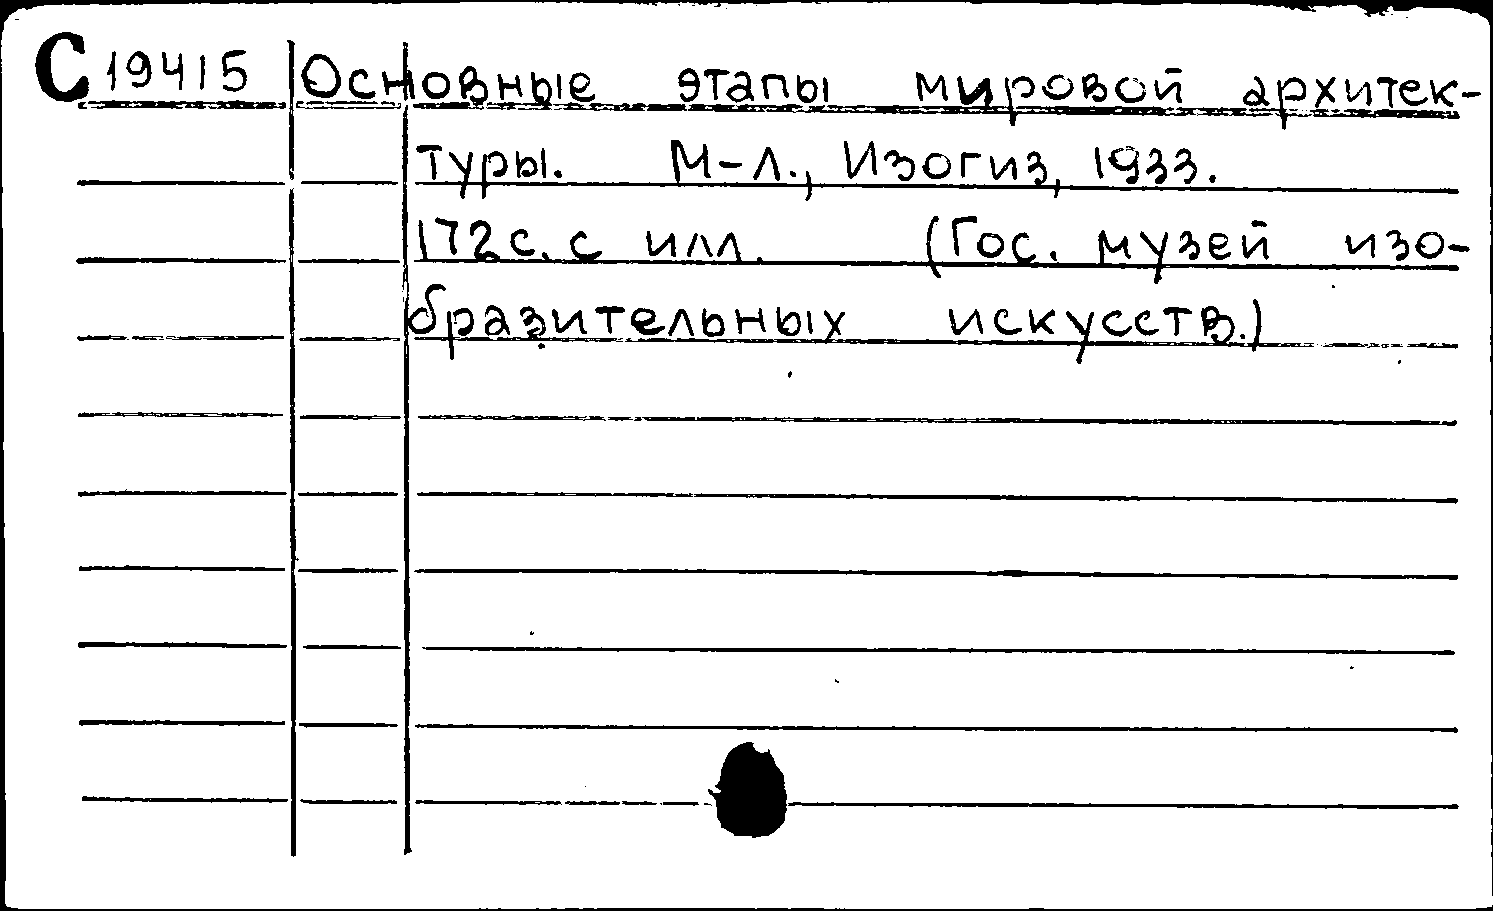 С 19415 Основные этапы мировой архитек-
туры. М-Л., Изогиз, 1933.
172с. с илл. (Гос. музей изо-
бразительных искусств.)